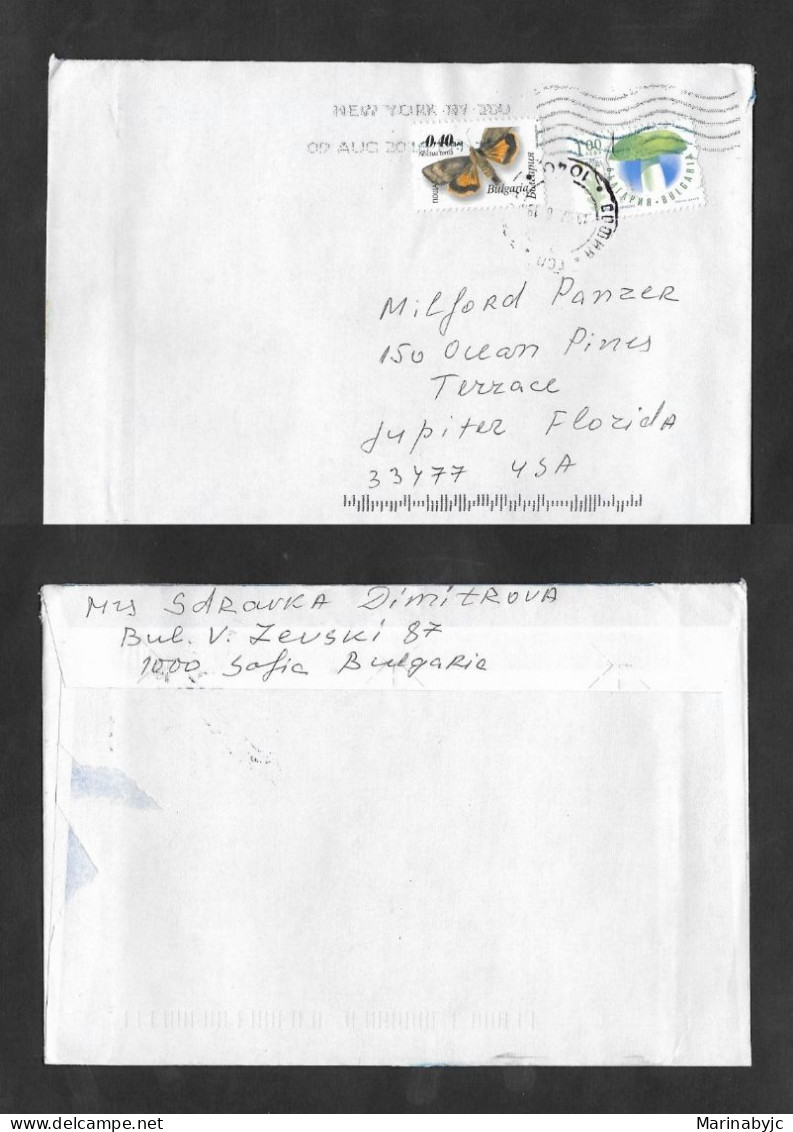 NEW YORK NY 100
09 AUG 201
0,40
Bulgaria
България
1,00
БЪЛГАРИЯ · BULGARIA
СОФИЯ
Milford Panzer
150 Ocean Pines
Terrace
Jupiter Florida
33477 USA
Mrs Sdravka Dimitrova
Bul. V. Levski 87
1000 Sofia Bulgaria
Marinabyjc